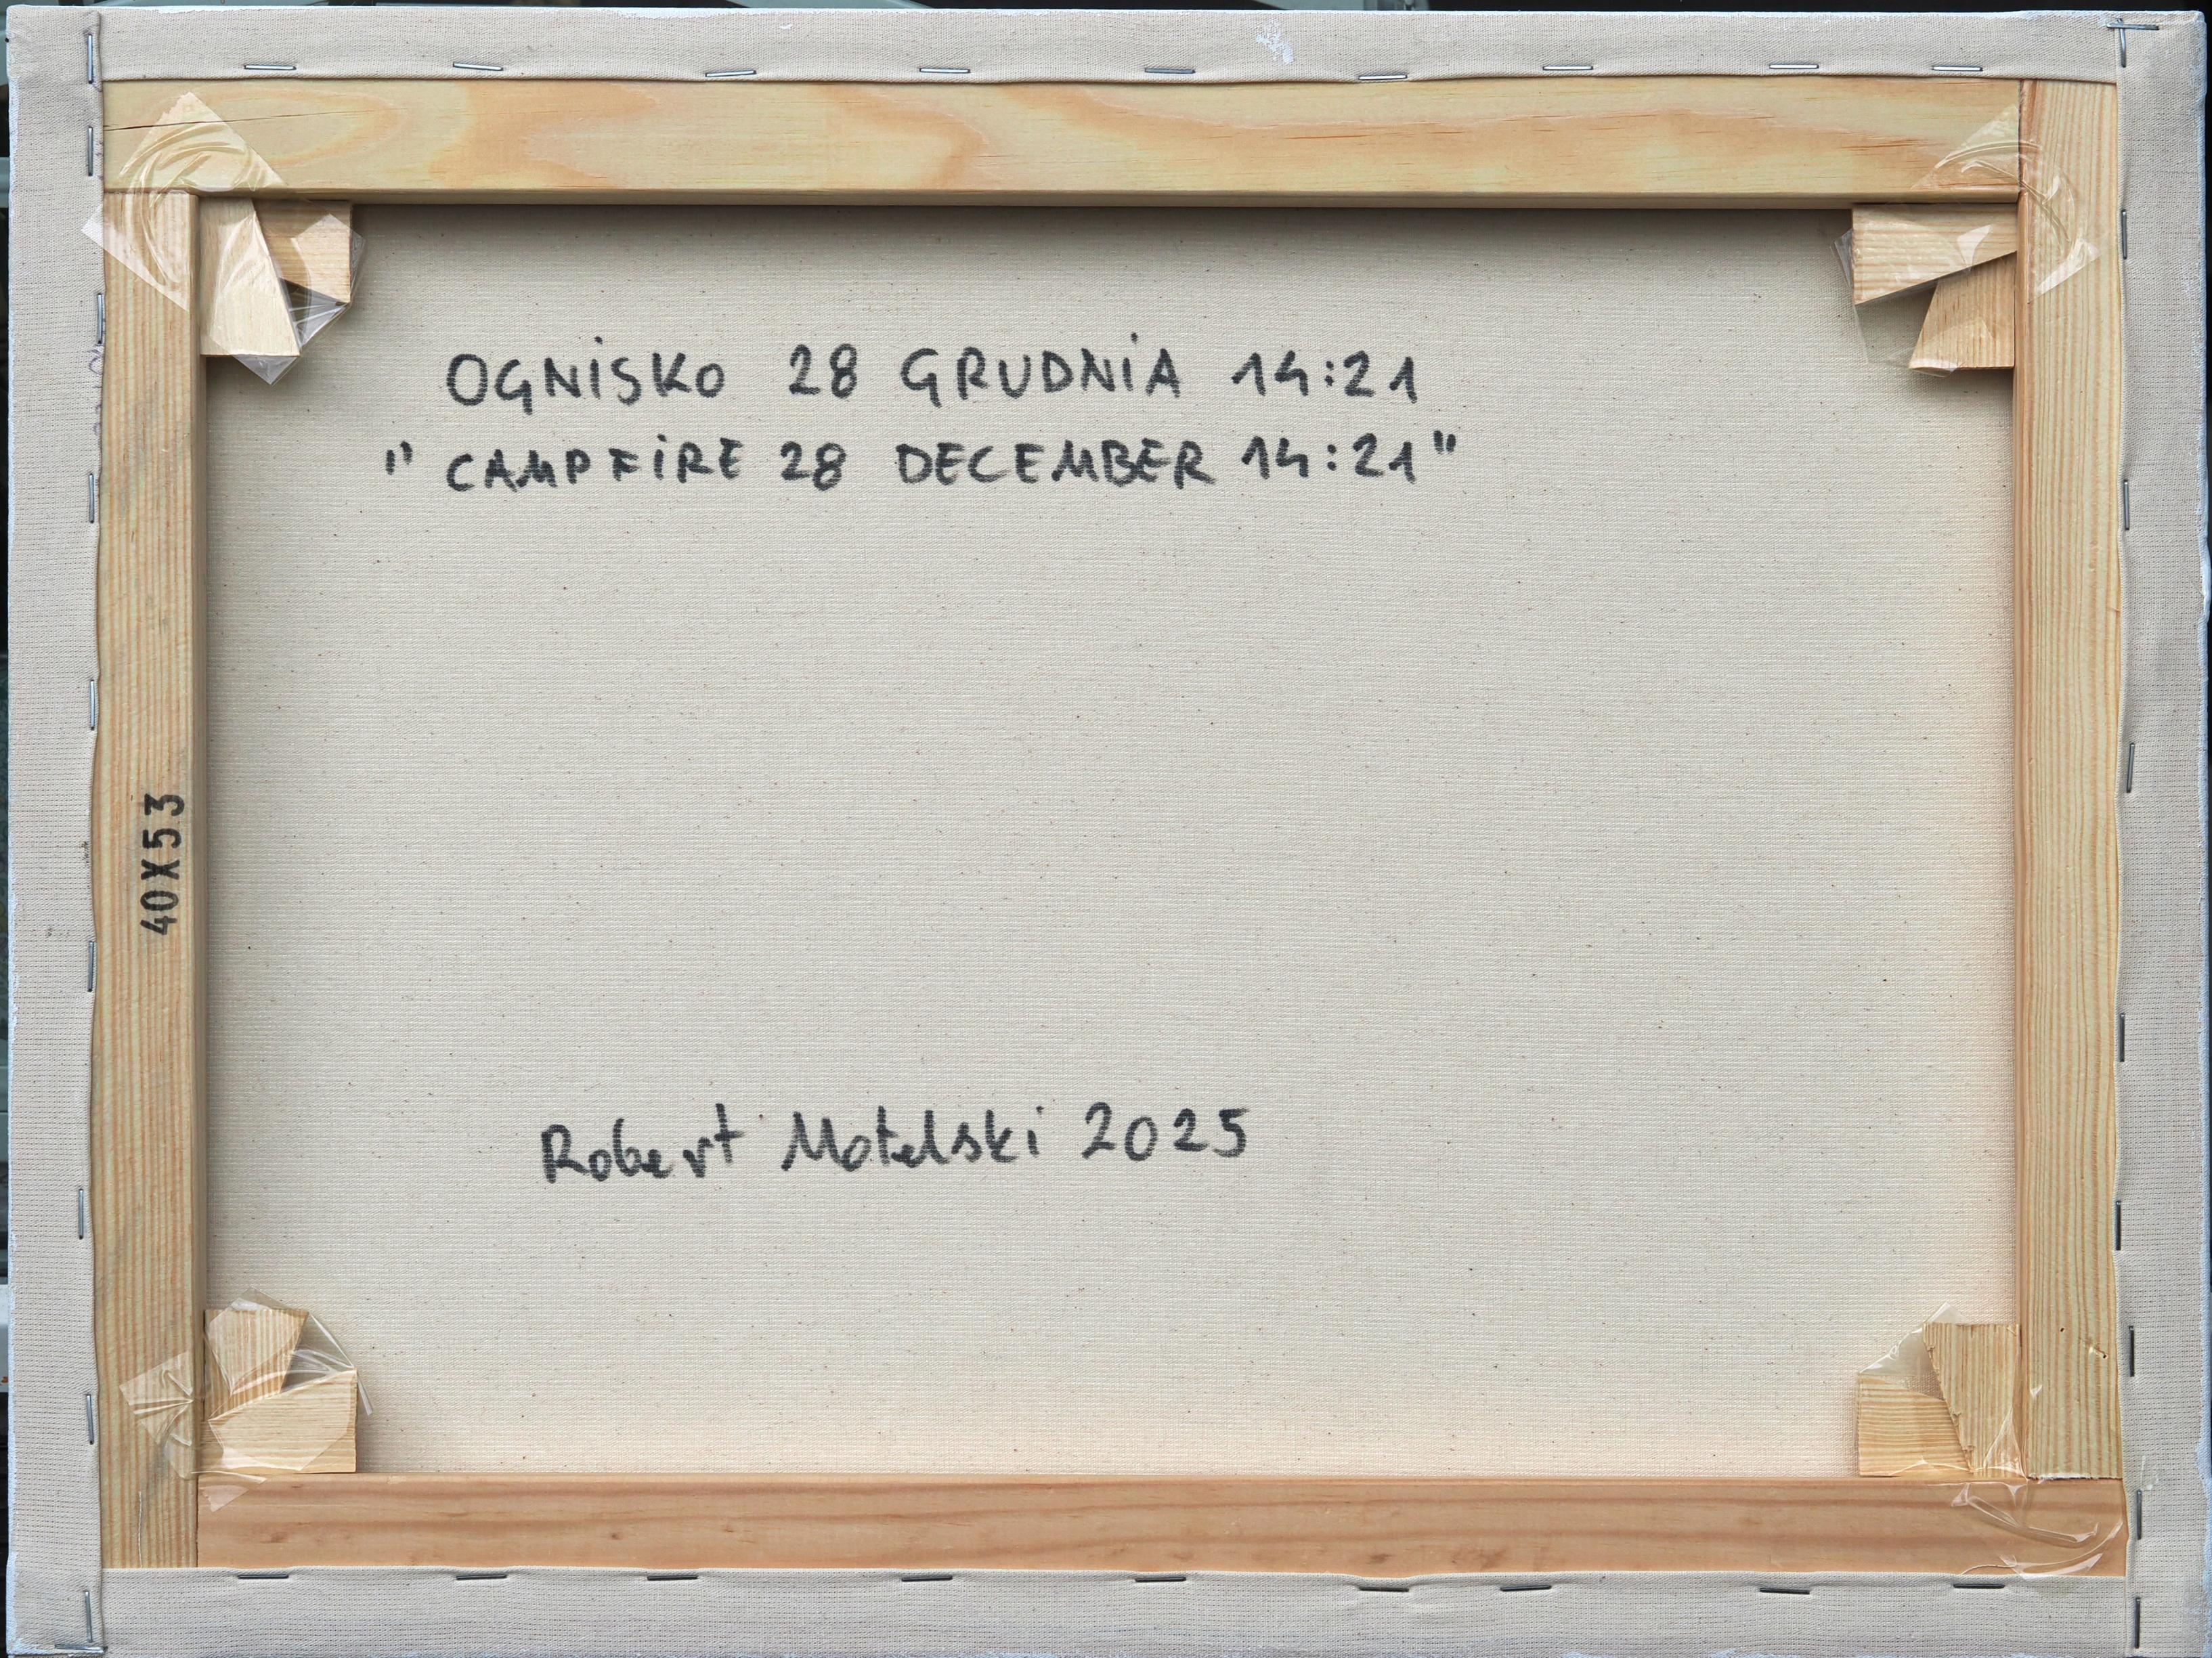 OGNiSKO 28 GRUDNiA 14:21
"CAMPFiRE 28 DECEMBER 14:21"
40X53
Robert Motelski 2025